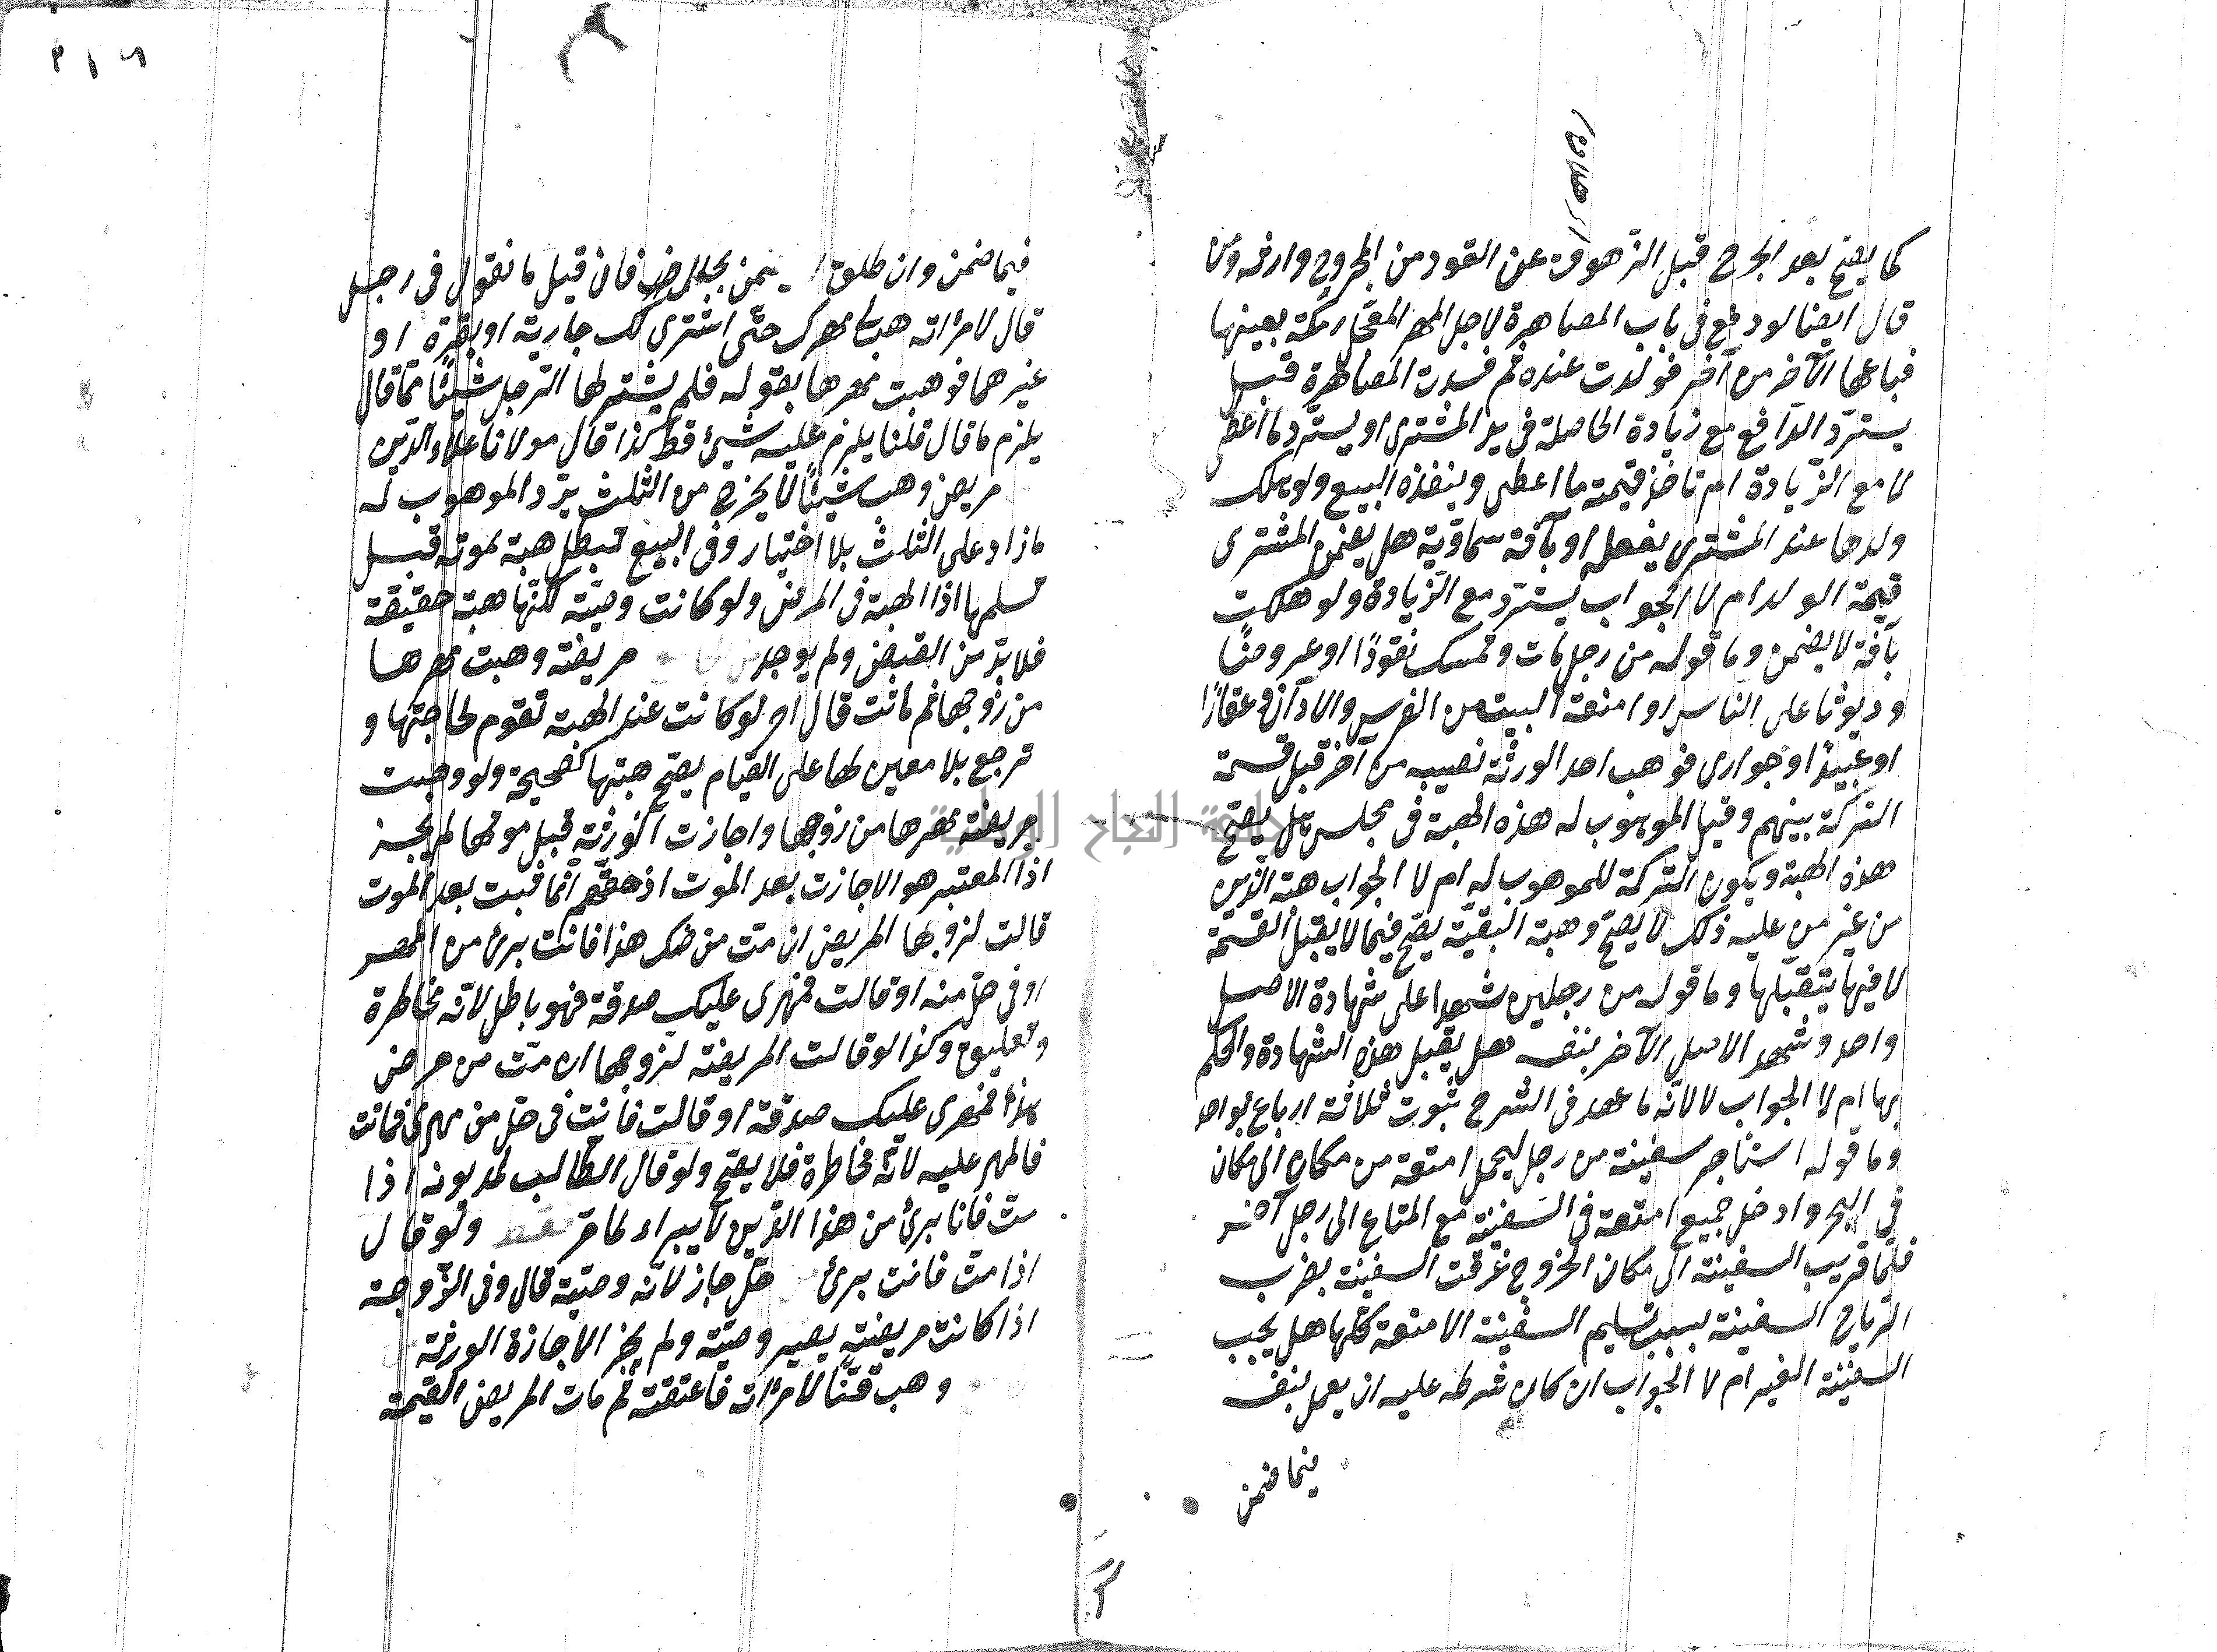 كما يصح بعد الجرح قبل الزهوق عن القود من المجروح وارثه ومن
قال ايضا لو دفع فى باب المصاهرة لاجل المهر المعجّل رمكة بعينها
فباعها الآخر من آخر فولدت عنده ثم فسدت المصاهرة قبل
يستردّ الدافع مع زيادة الحاصلة فى يد المشترى او يستردّ ما اعطى
لا مع الزّيادة ام تاخذ قيمة ما اعطى وينفذه البيع ولو هلك
ولدها عند المشترى بفعله او بآفة سماويّة هل يضمن المشترى
قيمة الولد ام لا الجواب يستردّ مع الزّيادة ولو هلكت
بآفة لا يضمن وما قوله من رجل مات وتمسك نقودًا او عروضًا
وديونا على الناس او امتعة البيت من الفرس والاداتى وعقارًا
او عبيدًا وجوارى فوهب احد الورثة نصيبه من آخر قبل قسمة
التركة بينهم وقبل الموهوب له هذه الهبة فى مجلس هل يصحّ
هذه الهبة ويكون التركة للموهوب له ام لا الجواب هبة الدّين
من غير من عليه ذلك لا يصحّ وهبة البقيّة يصحّ فيما لا يقبل القسمة
لا فيها يتقبّلها وما قوله من رجلين شهدا على شهادة الاصل
واحد وشهد الاصل الآخر بنفسه هل يقبل هذه الشهادة والحكم
بها ام لا الجواب لا لانّه ما عهد فى الشرح ثبوت ثلاثة ارباع بواحد
وما قوله استأجر سفينة من رجل ليحمل امتعة من مكان الى مكان
فى البحر وادخل جميع امتعة فى السّفينة مع المتاع الى رجل آخر
فلمّا قريب السفينة الى مكان الخروج غرقت السفينة بضرب
الرّياح السفينة بسبب تسليم السفينة الامتعة كلّها هل يجب
السفينة الغير ام لا الجواب ان كان شرطه عليه ان يعمل بنفسه
فيما ضمن
٢١٦
فيما ضمن وان طلق يضمن فان قيل ما نقول فى رجل
قال لامرأته هبى مهرك حتّى اشترى لك جارية او بقرة او
غيرهما فوهبت مهرها بقوله فلم يشتر لها الرّجل شيئًا ممّا قال
يلزم ما قال قلنا يلزم عليه شيئ قط كذا قال مولانا علاء الدّين
مريض وهب شيئًا لا يخرج من الثلث يردّ الموهوب له
ما زاد على الثلث بلا اختيار وفى البيع تبطل هبة بموته قبل
تسلمها اذا الهبة فى المرض ولو كانت وصيّة لكنّها هبة حقيقة
فلا بدّ من القبض ولم يوجد مريضة وهبت مهرها
من زوجها ثم ماتت قال لو كانت عند الهبة تقوم لحاجتها و
ترجع بلا معين لها على القيام يصحّ هبتها كصحيحة ولو وهبت
مريضة مهرها من زوجها واجازت الورثة قبل موتها لم يجز
اذا المعتبر هو الاجازت بعد الموت اذ حقّهم انّما ثبت بعد الموت
قالت لزوجها المريض ان متّ من مرضك هذا فانت برئ من المهر
او فى حلّ منه او قالت فمهرى عليك صدقة فهو باطل لانّه مخاطرة
وتعليق وكذا لو قالت المريضة لزوجها ان متّ من مرضى
هذا فمهرى عليك صدقة او قالت فانت فى حلّ من مهرى فماتت
فالمهر عليه لانّه مخاطرة فلا يصحّ ولو قال الطالب لمديونه اذا
متّ فانا برئ من هذا الدّين لا يبراء لما مرّ ولو قال
اذا متّ فانت برئ جاز لانّه وصيّة قال وفى الزّوجة
اذا كانت مريضة يصير وصيّة ولم يجز الا جازة الورثة
وهب قنًّا لامرأته فاعتقته ثم مات المريض القيمة
جامعة النجاح الوطنية